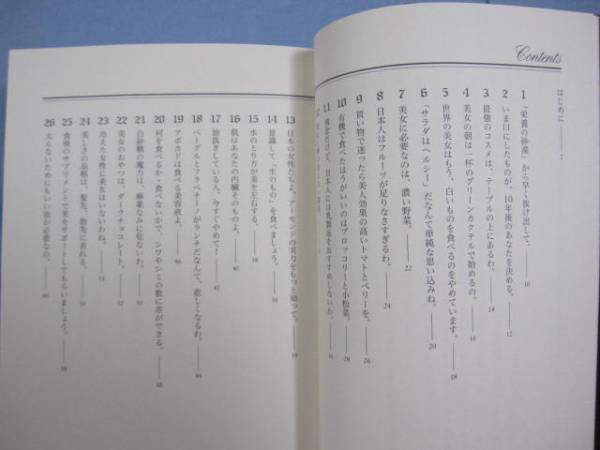 Contents
はじめに —— 2
1 「栄養の砂漠」から早く抜け出して。 —— 10
2 いま口にしたものが、10年後のあなたを決める。 —— 12
3 最強のコスメは、テーブルの上にあるわ。 —— 14
4 美女の朝は一杯のグリーンカクテルで始めるの。 —— 16
5 世界の美女はもう、白いものを食べるのをやめています。 —— 18
6 「サラダはヘルシー」だなんて単純な思い込みね。 —— 20
7 美女に必要なのは、濃い野菜。 —— 22
8 日本人はフルーツが足りなさすぎるわ。 —— 24
9 買い物で迷ったら美人効果の高いトマトとベリーを。 —— 26
10 有機で食べたほうがいいのはブロッコリーと小松菜。 —— 28
11 残念だけど、日本人には乳製品をおすすめしないわ。
12
13 日本の女性たちよ、アーモンドの実力をもっと知って。
14 意識して「生のもの」を食べましょう。
15 水のとり方が美を左右する。
16 肌はあなたの内臓そのものよ。 —— 40
17 油抜きしている人、今すぐやめて! —— 42
18 ベーグルとフラペチーノがランチだなんて、悲しくなるわ。
19 アボカドは食べる美容液よ。
20 何を食べるか・食べないかで、シワやシミの数に差ができる。 —— 48
21 白砂糖の魔力は、麻薬なみに危ないわ。
22 美女のおやつは、ダークチョコレート。 —— 52
23 冷えた女性に美女はいないわね。
24 美しさの品格は、髪先、指先に表れる。
25 食後のサプリメントで美をサポートしてもらいましょう。
26 太らないためにもいい油が必要なの。